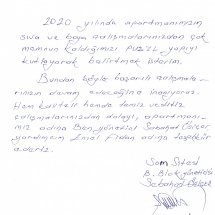 2020 yılında apartmanımızın
sıva ve boya çalışmalarınızdan çok
memnun kaldığımızı yapıyı
kutlayarak belirtmek isterim.
Bundan böyle başarılı çalışmala-
rınızın devam edeceğine inanıyoruz.
Hem kaliteli hemde temiz
çalışmalarınızdan dolayı, apartmanı-
mız adına Ben yönetici Sabahat
yardımcım Fidan adına teşekkür
ederiz.
Som Sitesi
B. Blok yöneticisi
Sabahat